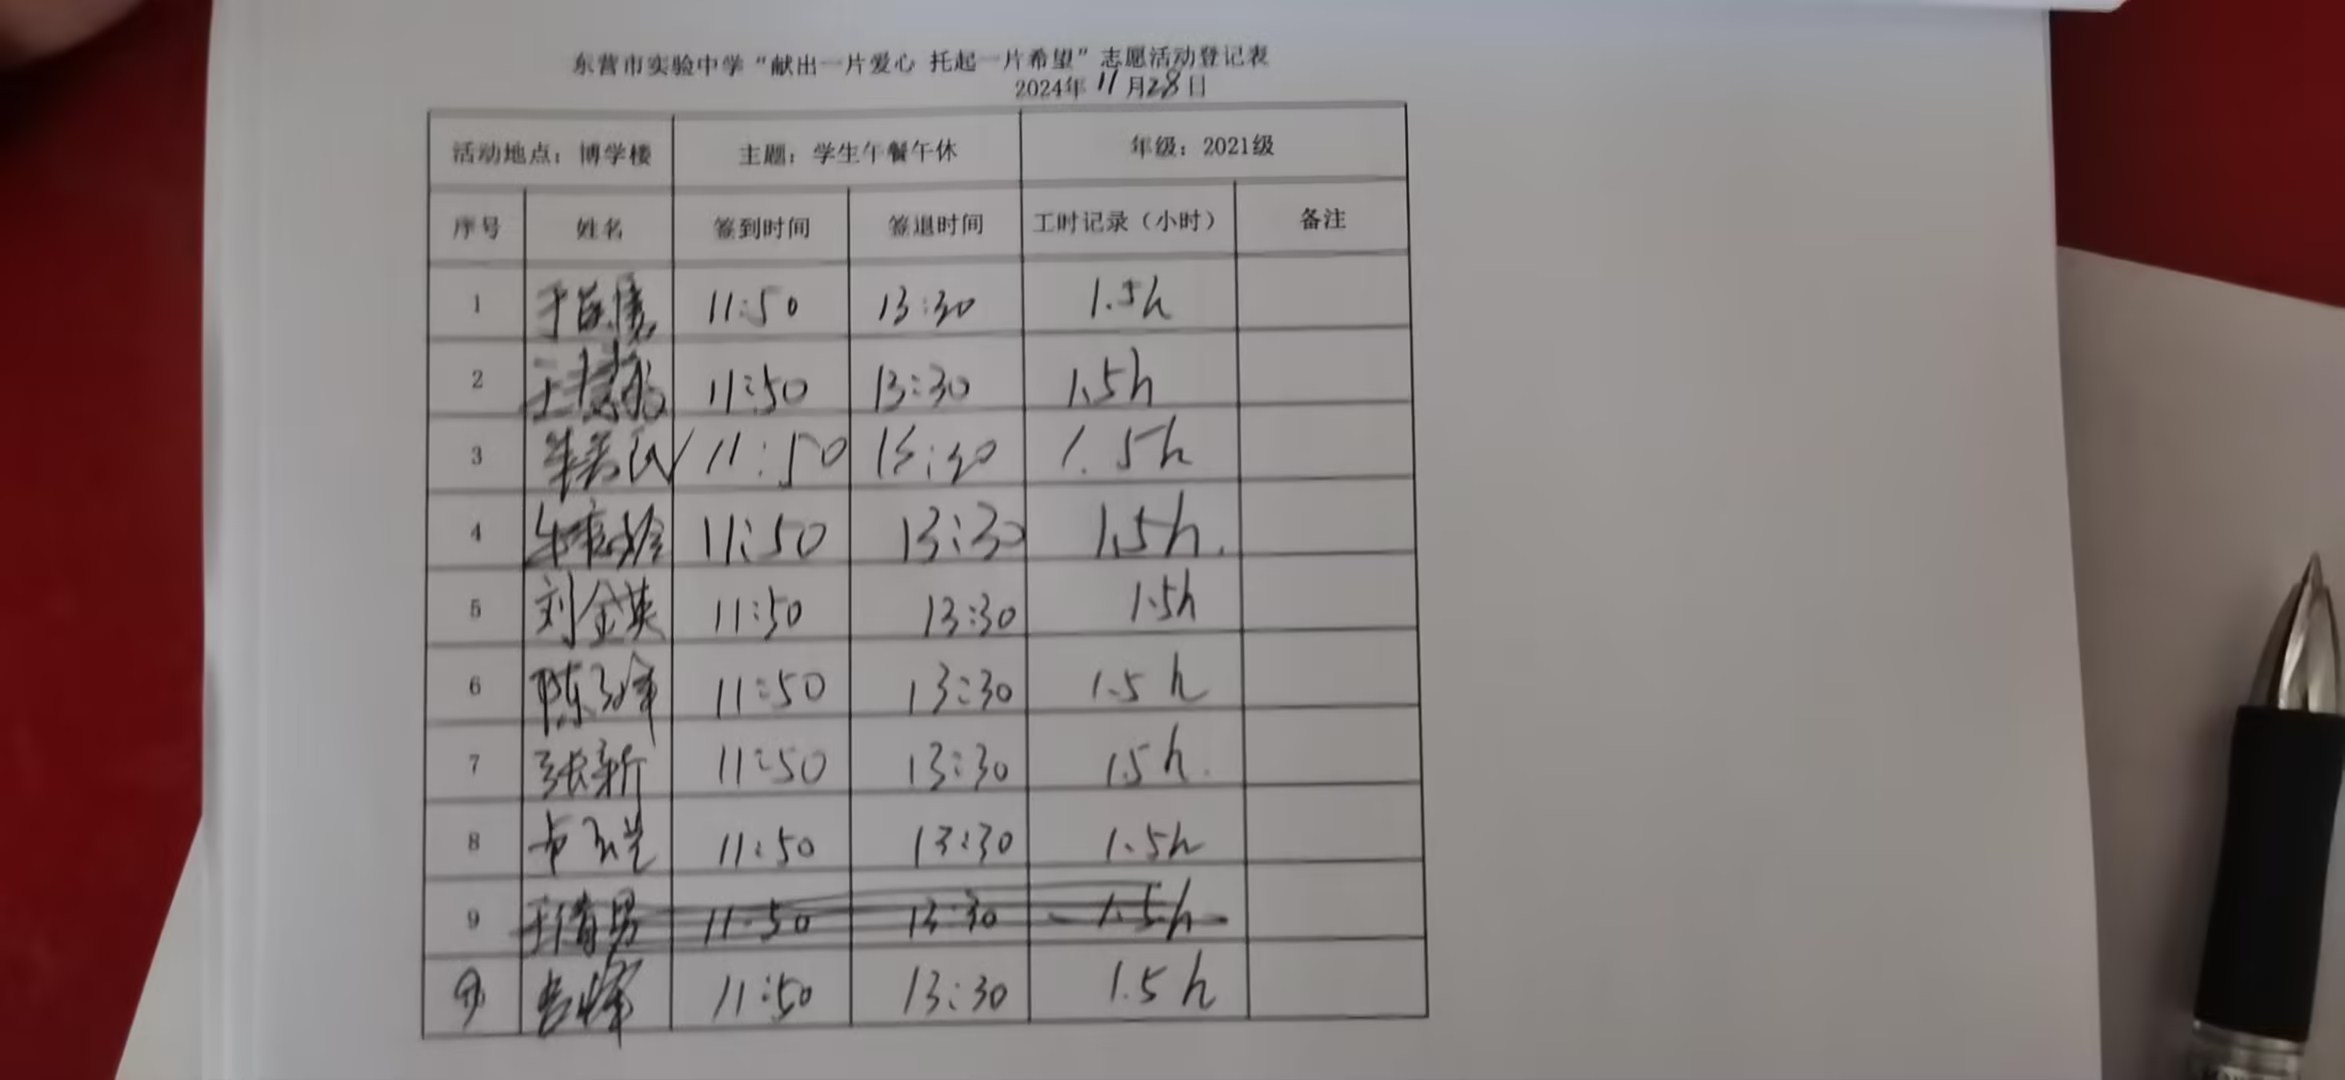 东营市实验中学“献出一片爱心 托起一片希望”志愿活动登记表
2024年11月28日
活动地点：博学楼 主题：学生午餐午休 年级：2021级
序号 姓名 签到时间 签退时间 工时记录（小时） 备注
1 11:50 13:30 1.5h
2 11:50 13:30 1.5h
3 11:50 13:30 1.5h
4 11:50 13:30 1.5h.
5 刘金英 11:50 13:30 1.5h
6 11:50 13:30 1.5h
7 张新 11:50 13:30 1.5h.
8 11:50 13:30 1.5h
9 11:50 13:30 1.5h
11:50 13:30 1.5h